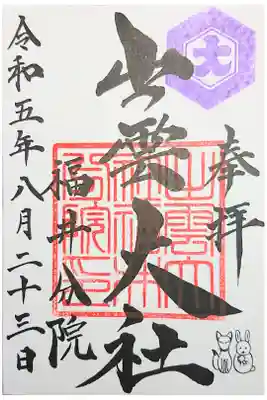 大
奉拝
出雲大社
福井分院
令和五年八月二十三日